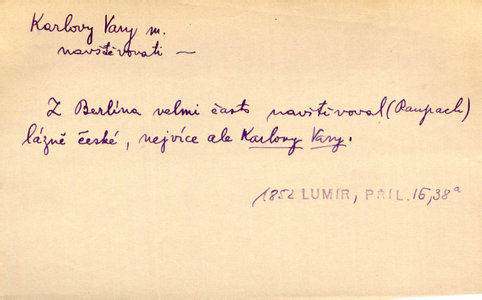 Karlovy Vary m.
navštěvovati —
Z Berlína velmi často navštivoval (Raupach)
lázně české, nejvíce ale Karlovy Vary.
1852 LUMIR, PŘÍL. 16, 38a